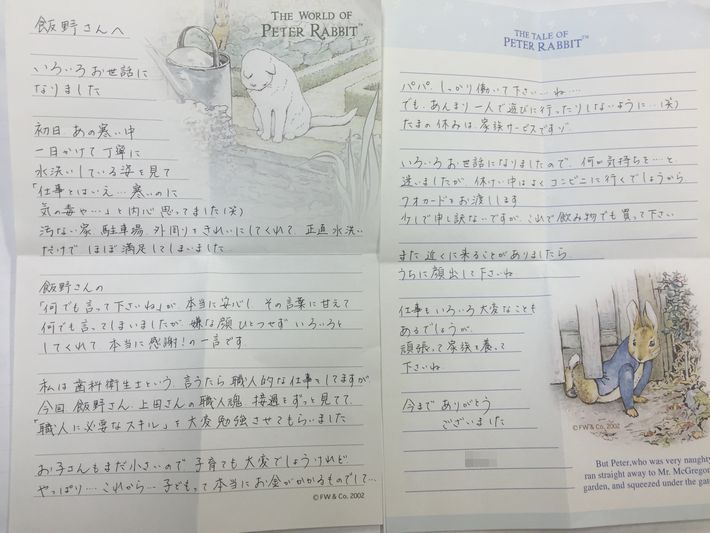 THE WORLD OF
PETER RABBIT™
飯野さんへ
いろいろお世話に
なりました
初日、あの寒い中
一日かけて丁寧に
水洗いしている姿を見て
「仕事とはいえ…寒いのに
気の毒や…」と内心思ってました(笑)
汚ない家、駐車場、外周りをきれいにしてくれて、正直水洗い
だけでほぼ満足してしまいました
飯野さんの
「何でも言って下さいね」が、本当に安心し、その言葉に甘えて
何でも言ってしまいましたが、嫌な顔ひとつせず、いろいろと
してくれて、本当に感謝!の一言です
私は歯科衛生士という、言うたら職人的な仕事をしてますが、
今回、飯野さん、上田さんの職人魂、接遇をずっと見てて、
「職人に必要なスキル」を大変勉強させてもらいました
お子さんもまだ小さいので、子育ても大変でしょうけれど、
やっぱり…これから…子どもって本当にお金がかかるものでして…
©FW & Co. 2002
THE TALE OF
PETER RABBIT™
パパ、しっかり働いて下さい…ね…
でも、あんまり一人で遊びに行ったりしないように…(笑)
たまの休みは、家族サービスですゾ
いろいろお世話になりましたので、何か気持ちを…と、
迷いましたが、休けい中はよくコンビニに行くでしょうから
クオカードをお渡しします
少しで申し訳ないですが、これで飲み物でも買って下さい
また近くに来ることがありましたら、
うちに顔出して下さいね
仕事もいろいろ大変なことも
あるでしょうが、
頑張って家族を養って
下さいね
今まで ありがとう
ございました
©FW & Co. 2002
But Peter, who was very naughty
ran straight away to Mr. McGregor
garden, and squeezed under the